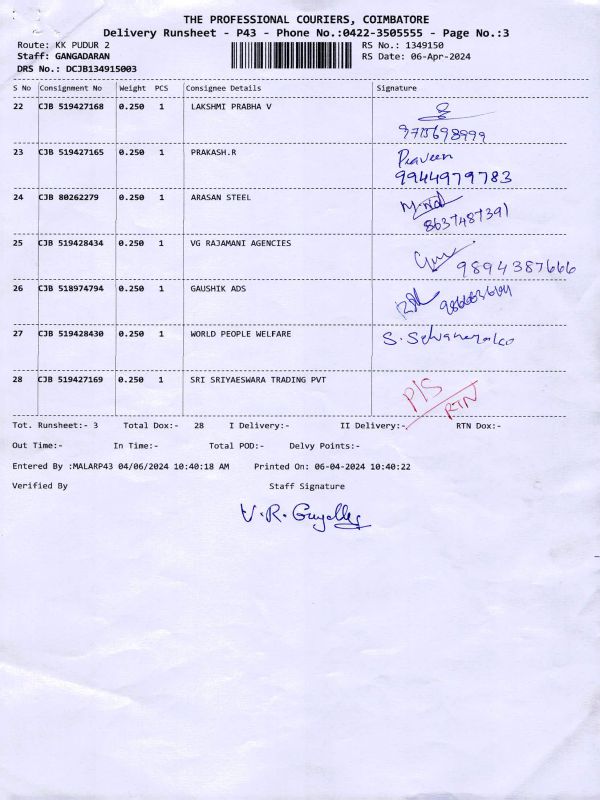 THE PROFESSIONAL COURIERS, COIMBATORE
Delivery Runsheet - P43 - Phone No.:0422-3505555 - Page No.:3
Route: KK PUDUR 2 RS No.: 1349150
Staff: GANGADARAN RS Date: 06-Apr-2024
DRS No.: DCJB134915003
S No Consignment No Weight PCS Consignee Details Signature
22 CJB 519427168 0.250 1 LAKSHMI PRABHA V
9715698999
23 CJB 519427165 0.250 1 PRAKASH.R Praveen
9944979783
24 CJB 80262279 0.250 1 ARASAN STEEL
8637487391
25 CJB 519428434 0.250 1 VG RAJAMANI AGENCIES
9894387666
26 CJB 518974794 0.250 1 GAUSHIK ADS
27 CJB 519428430 0.250 1 WORLD PEOPLE WELFARE S.
28 CJB 519427169 0.250 1 SRI SRIYAESWARA TRADING PVT P/S
RTN
Tot. Runsheet:- 3 Total Dox:- 28 I Delivery:- II Delivery:- RTN Dox:-
Out Time:- In Time:- Total POD:- Delvy Points:-
Entered By :MALARP43 04/06/2024 10:40:18 AM Printed On: 06-04-2024 10:40:22
Verified By Staff Signature
V.R.